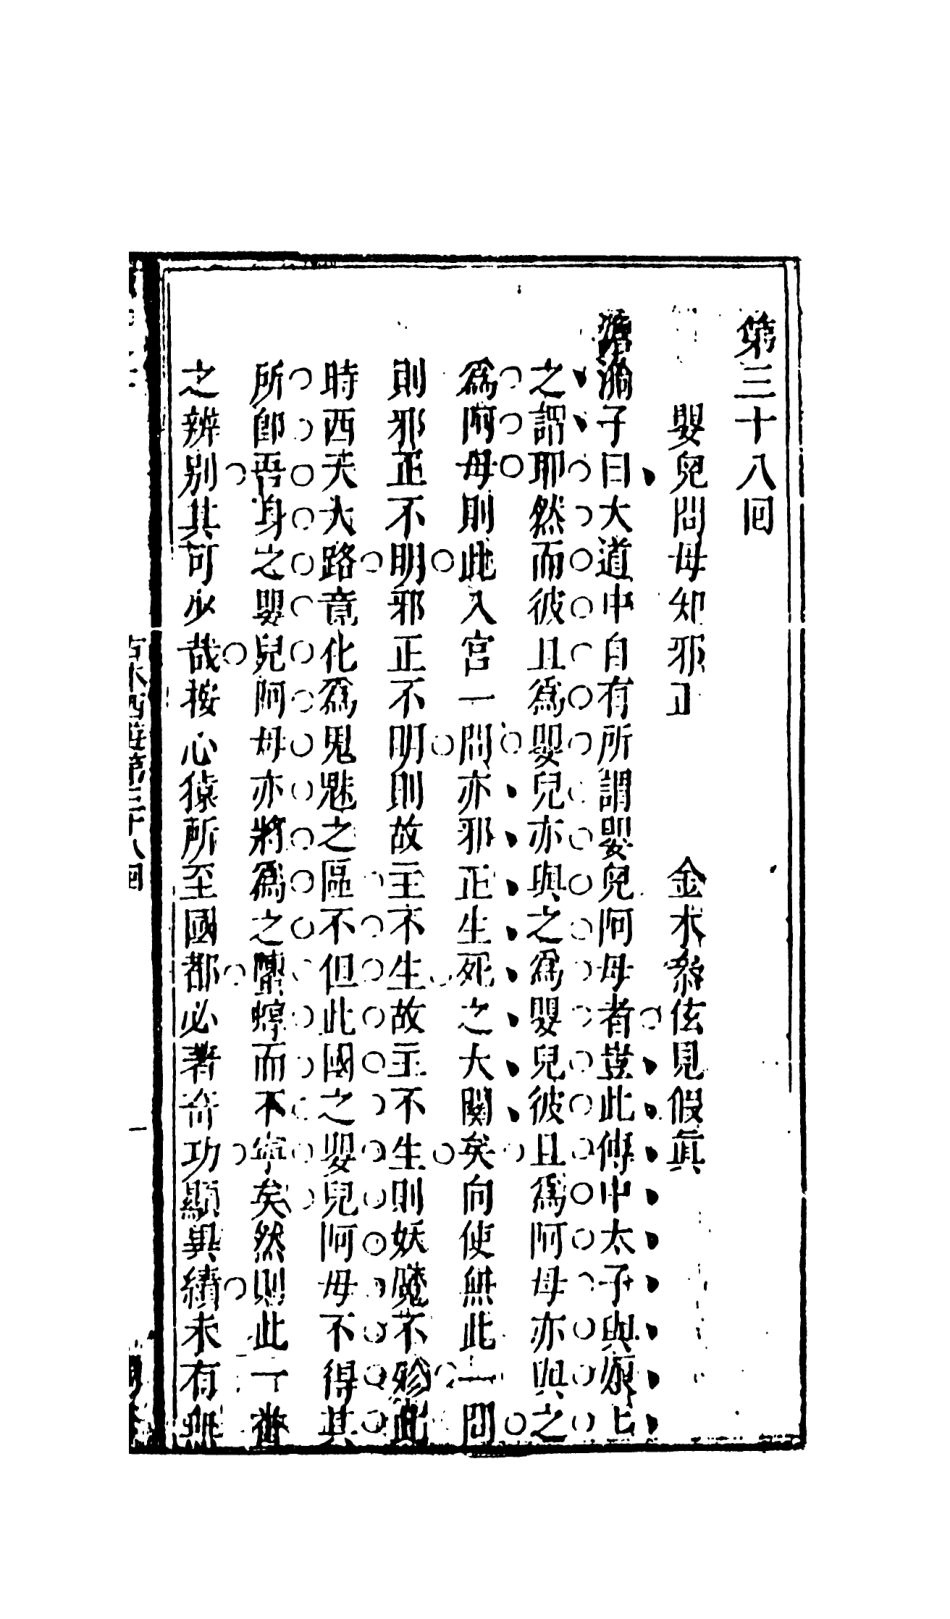 第三十八回
嬰兒問母知邪正　金木參玄見假眞
澹漪子曰大道中自有所謂嬰兒阿母者豈此傳中太子與娘上
之謂耶然而彼且爲嬰兒亦與之爲嬰兒彼且爲阿母亦與之
爲阿母則此入宮一問亦邪正生死之大關矣向使無此一問
則邪正不明邪正不明則故主不生故主不生則妖魔不殄此
時西天大路竟化爲鬼魅之區不但此國之嬰兒阿母不得其
所卽吾身之嬰兒阿母亦將爲之蟁蜳而不寧矣然則此一番
之辨別其可少哉按心猿所至國都必著奇功顯異績未有無
古本西遊第三十八回
一